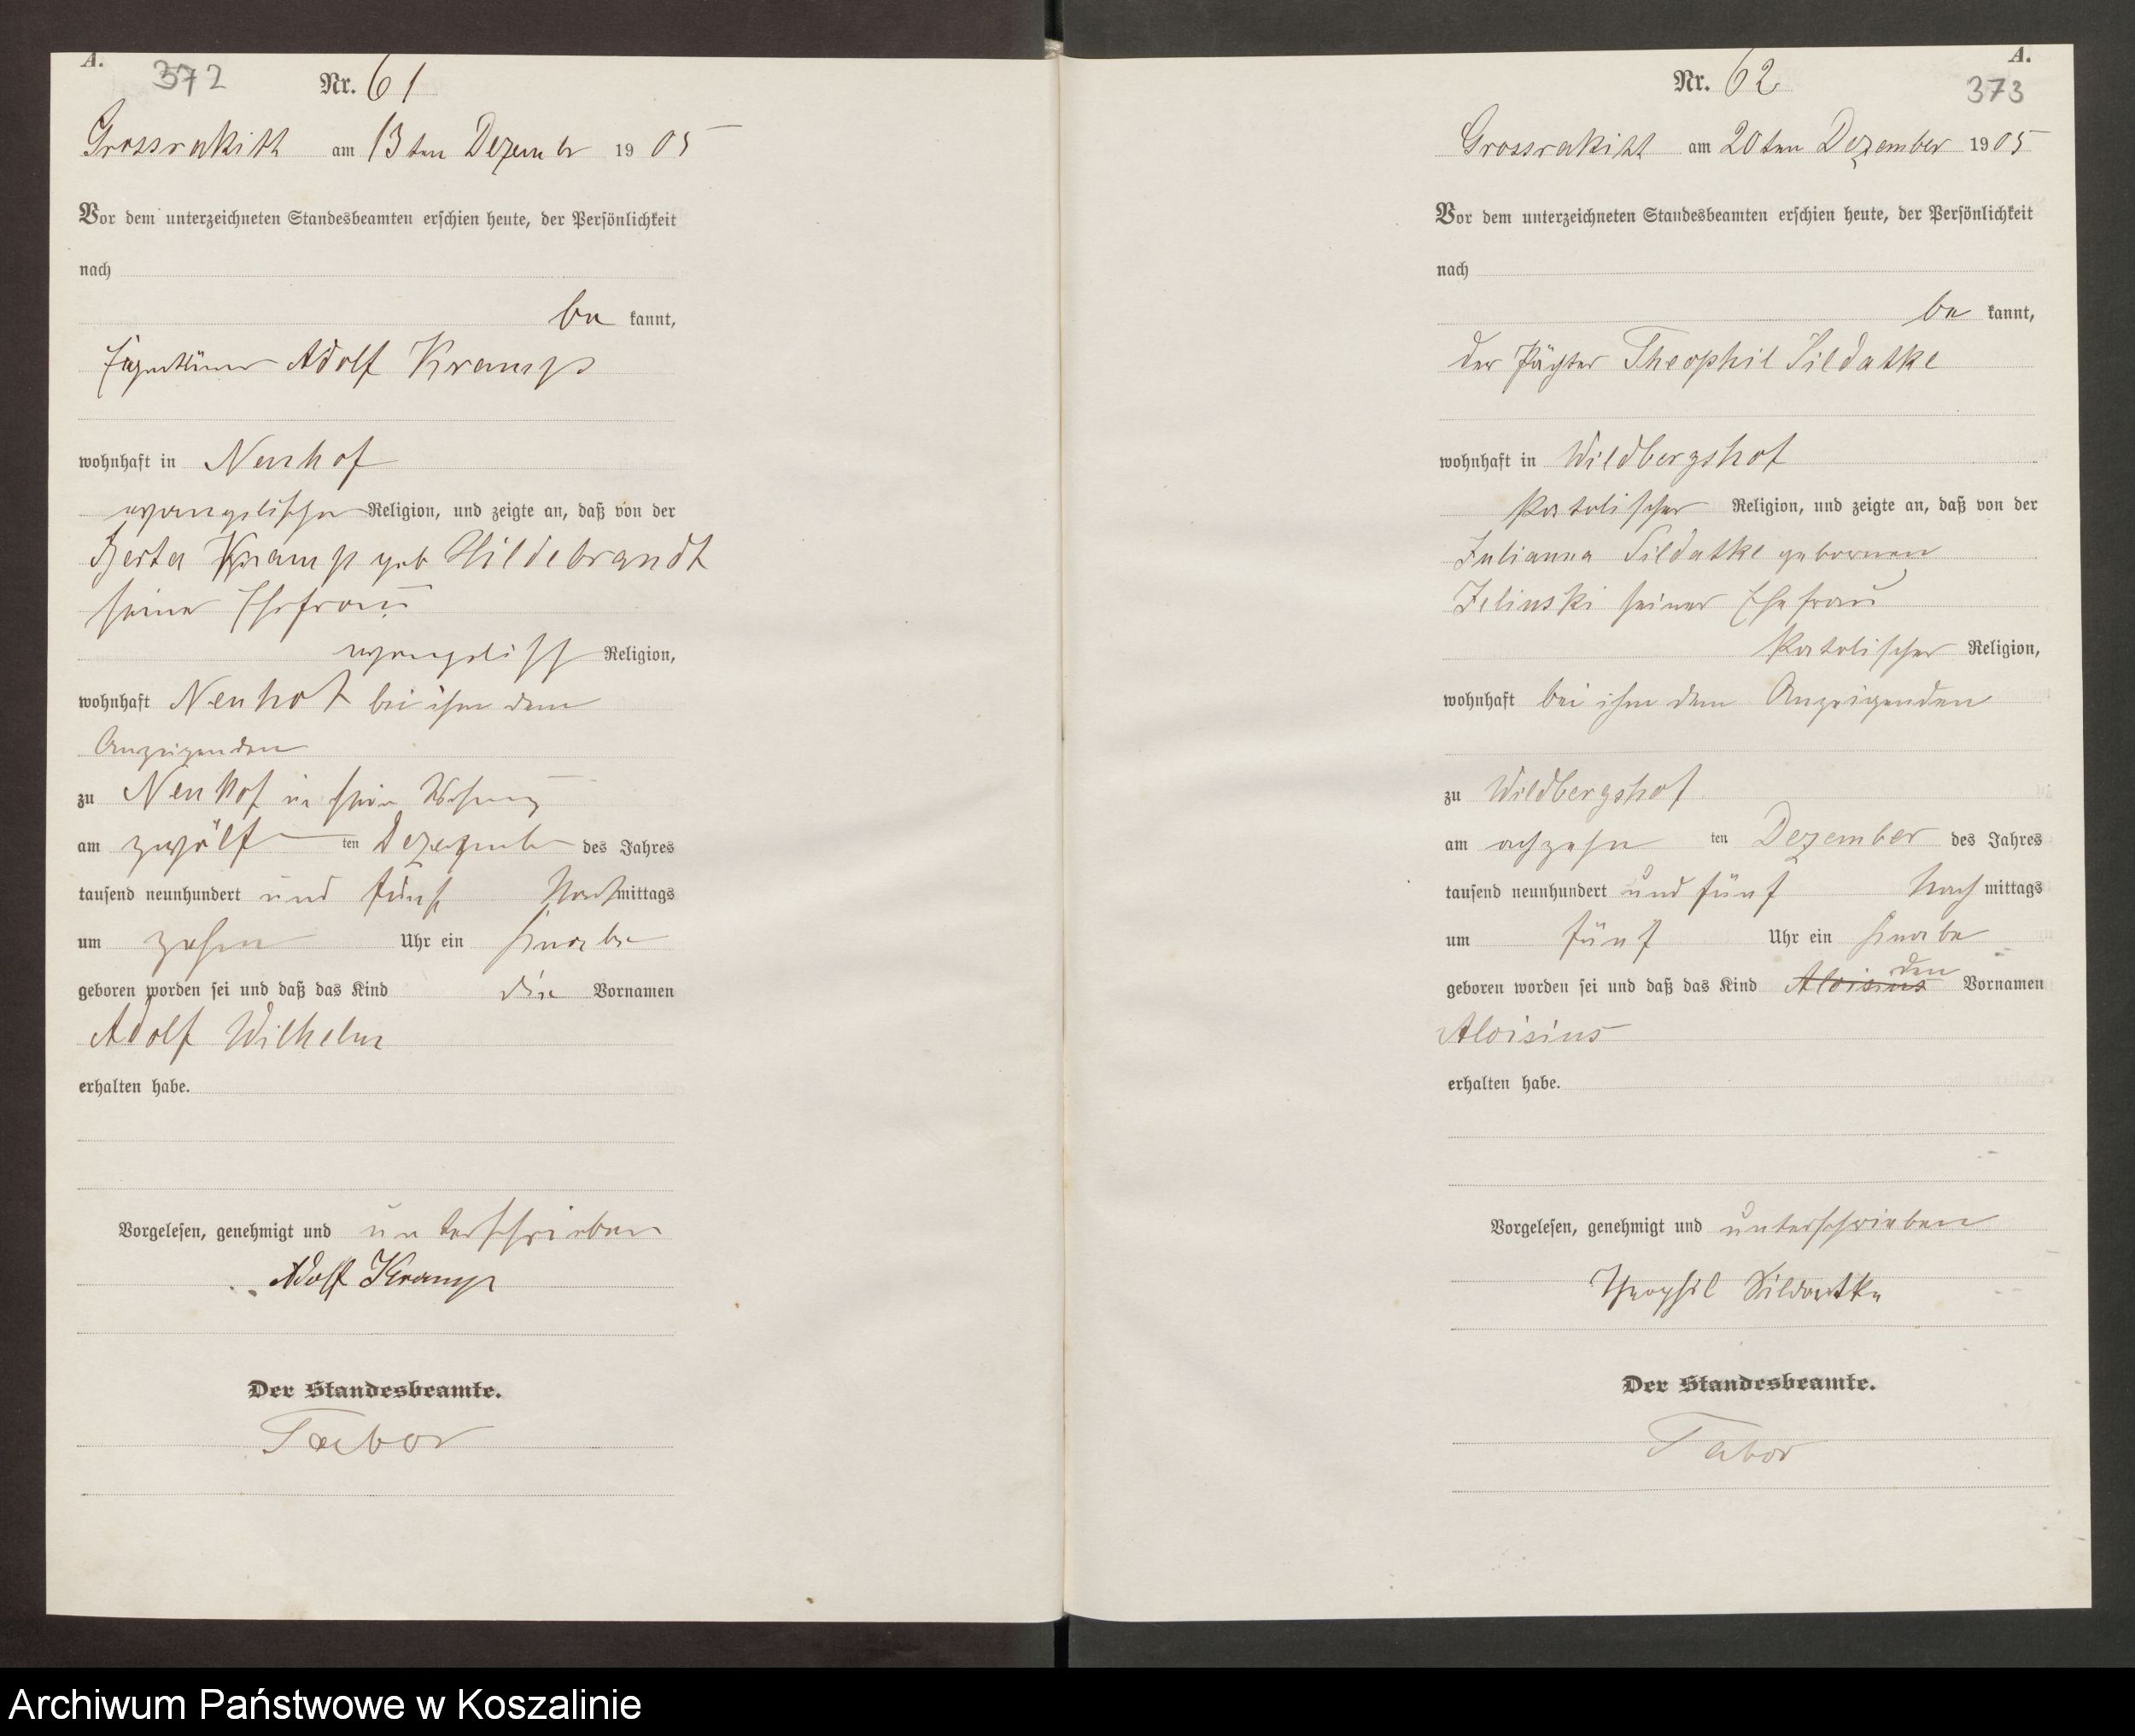 A.
372
Nr. 61
Grossrakitt am 13ten Dezember 1905
Vor dem unterzeichneten Standesbeamten erschien heute, der Persönlichkeit
nach
be kannt,
Eigentümer Adolf Kramp
wohnhaft in Neuhof
evangelischer Religion, und zeigte an, daß von der
Berta Kramp geb Hildebrandt
seiner Ehefrau
evangelisch Religion,
wohnhaft Neuhof bei ihm dem
Anzeigenden
zu Neuhof in seiner Wohnung
am zwölf ten Dezember des Jahres
tausend neunhundert und fünf Nachmittags
um zehn Uhr ein Knabe
geboren worden sei und daß das Kind die Vornamen
Adolf Wilhelm
erhalten habe.
Vorgelesen, genehmigt und unterschrieben
Adolf Kramp
Der Standesbeamte.
Tabor
A.
373
Nr. 62
Grossrakitt am 20ten Dezember 1905
Vor dem unterzeichneten Standesbeamten erschien heute, der Persönlichkeit
nach
be kannt,
der Pächter Theophil Sildatke
wohnhaft in Wildbergshof
katolischer Religion, und zeigte an, daß von der
Julianna Sildatke gebornen
Jelinski seiner Ehefrau
katolischer Religion,
wohnhaft bei ihm dem Anzeigenden
zu Wildbergshof
am achzehn ten Dezember des Jahres
tausend neunhundert und fünf Nach mittags
um fünf Uhr ein Knabe
geboren worden sei und daß das Kind Aloisius den Vornamen
Aloisius
erhalten habe.
Vorgelesen, genehmigt und unterschrieben
Theophil Sildatke
Der Standesbeamte.
Tabor
Archiwum Państwowe w Koszalinie